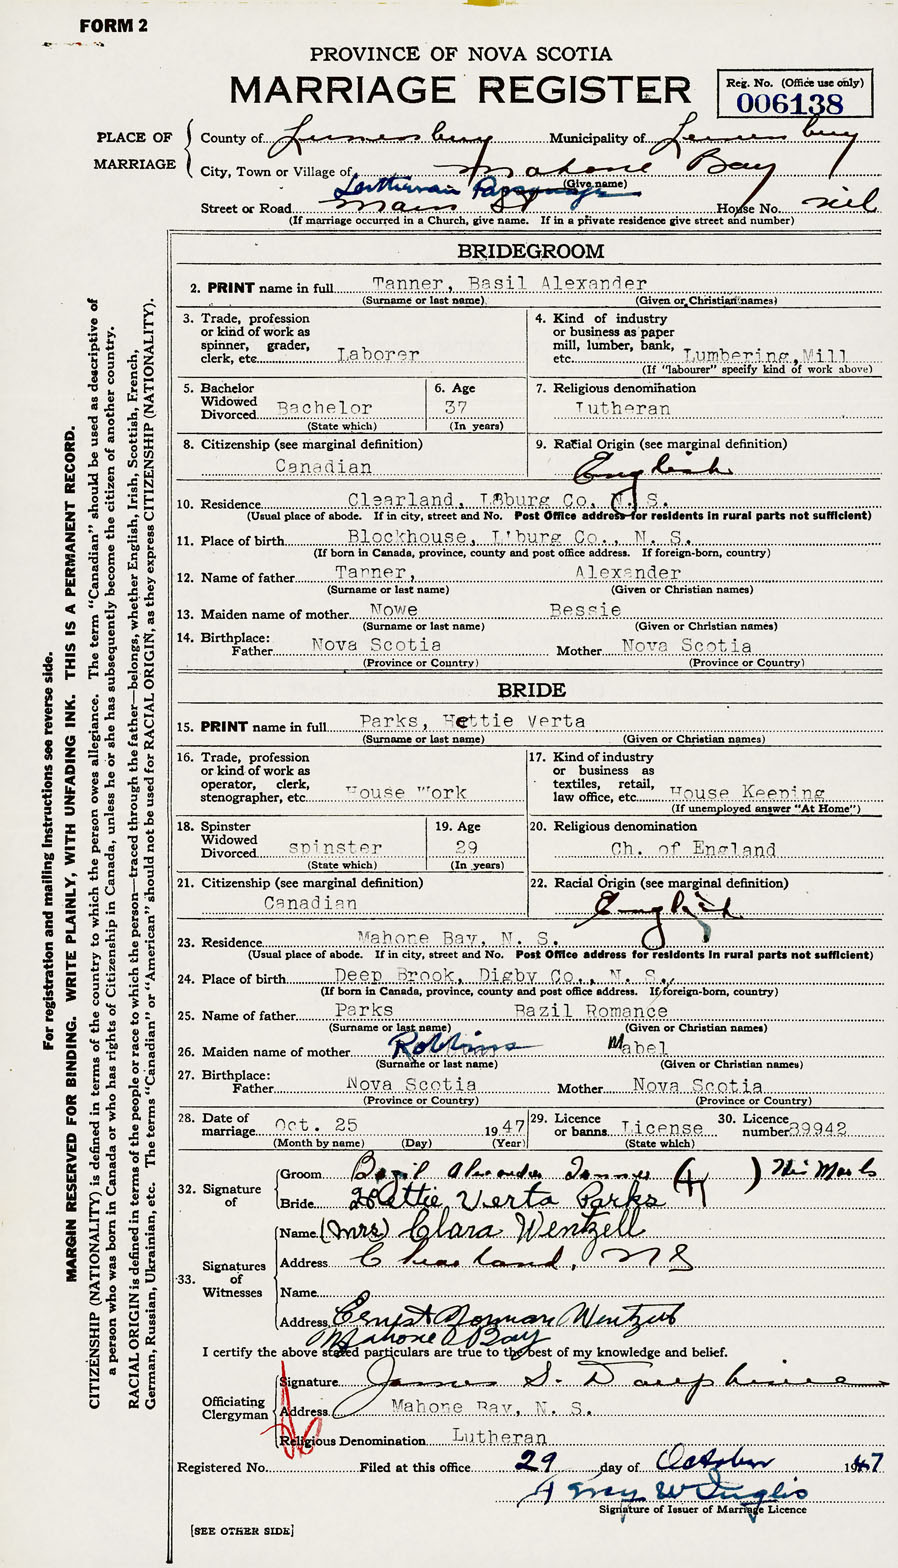 FORM 2
PROVINCE OF NOVA SCOTIA
MARRIAGE REGISTER
Reg. No. (Office use only)
006138
PLACE OF MARRIAGE
County of Lunenburg Municipality of Lunenburg
City, Town or Village of Mahone Bay
(Give name)
Lutheran Parsonage
Street or Road Main St House No. nil
(If marriage occurred in a Church, give name. If in a private residence give street and number)
BRIDEGROOM
2. PRINT name in full Tanner, Basil Alexander
(Surname or last name) (Given or Christian names)
3. Trade, profession or kind of work as spinner, grader, clerk, etc. Laborer
4. Kind of industry or business as paper mill, lumber, bank, etc. Lumbering, Mill
(If "labourer" specify kind of work above)
5. Bachelor Widowed Divorced Bachelor
(State which)
6. Age 37
(In years)
7. Religious denomination
Lutheran
8. Citizenship (see marginal definition)
Canadian
9. Racial Origin (see marginal definition)
English
10. Residence Clearland, L'burg Co, N. S.
(Usual place of abode. If in city, street and No. Post Office address for residents in rural parts not sufficient)
11. Place of birth Blockhouse, L'burg Co., N. S.
(If born in Canada, province, county and post office address. If foreign-born, country)
12. Name of father Tanner, Alexander
(Surname or last name) (Given or Christian names)
13. Maiden name of mother Nowe Bessie
(Surname or last name) (Given or Christian names)
14. Birthplace:
Father Nova Scotia Mother Nova Scotia
(Province or Country) (Province or Country)
BRIDE
15. PRINT name in full Parks, Hettie Verta
(Surname or last name) (Given or Christian names)
16. Trade, profession or kind of work as operator, clerk, stenographer, etc. House Work
17. Kind of industry or business as textiles, retail, law office, etc. House Keeping
(If unemployed answer "At Home")
18. Spinster Widowed Divorced spinster
(State which)
19. Age 29
(In years)
20. Religious denomination
Ch. of England
21. Citizenship (see marginal definition)
Canadian
22. Racial Origin (see marginal definition)
English
23. Residence Mahone Bay, N. S.
(Usual place of abode. If in city, street and No. Post Office address for residents in rural parts not sufficient)
24. Place of birth Deep Brook, Digby Co., N. S.,
(If born in Canada, province, county and post office address. If foreign-born, country)
25. Name of father Parks Bazil Romance
(Surname or last name) (Given or Christian names)
26. Maiden name of mother Robbins Mabel
(Surname or last name) (Given or Christian names)
27. Birthplace:
Father Nova Scotia Mother Nova Scotia
(Province or Country) (Province or Country)
28. Date of marriage Oct. 25 1947
(Month by name) (Day) (Year)
29. Licence or banns License
(State which)
30. Licence number 39942
32. Signature of
Groom Basil Alexander Tanner ( X ) His Mark
Bride Hettie Verta Parks
33. Signatures of Witnesses
Name (Mrs) Clara Wentzell
Address Clearland, N S
Name
Address Ernst Norman Wentzell
Mahone Bay
I certify the above stated particulars are true to the best of my knowledge and belief.
Officiating Clergyman
Signature James S. Dauphinee
Address Mahone Bay, N. S.
Religious Denomination Lutheran
Registered No. Filed at this office 29 day of October 1947
Signature of Issuer of Marriage Licence
[SEE OTHER SIDE]
For registration and mailing instructions see reverse side.
MARGIN RESERVED FOR BINDING. WRITE PLAINLY, WITH UNFADING INK. THIS IS A PERMANENT RECORD.
CITIZENSHIP (NATIONALITY) is defined in terms of the country to which the person owes allegiance. The term "Canadian" should be used as descriptive of
a person who was born in Canada or who has rights of Citizenship in Canada, unless he or she has subsequently become the citizen of another country.
RACIAL ORIGIN is defined in terms of the people or race to which the person—traced through the father—belongs, whether English, Irish, Scottish, French,
German, Russian, Ukrainian, etc. The terms "Canadian" or "American" should not be used for RACIAL ORIGIN, as they express CITIZENSHIP (NATIONALITY).